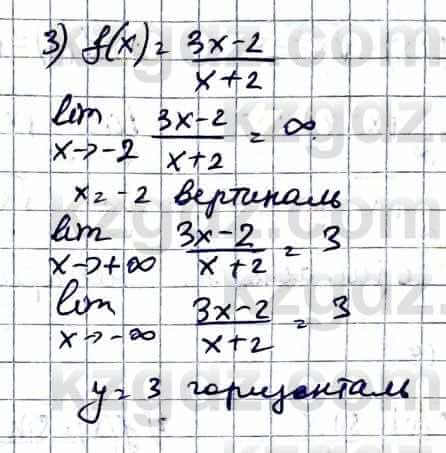 3) f(x) = 3x-2 / x+2
lim x→-2 3x-2 / x+2 = ∞
x = -2 вертикаль
lim x→+∞ 3x-2 / x+2 = 3
lim x→-∞ 3x-2 / x+2 = 3
y = 3 горизонталь